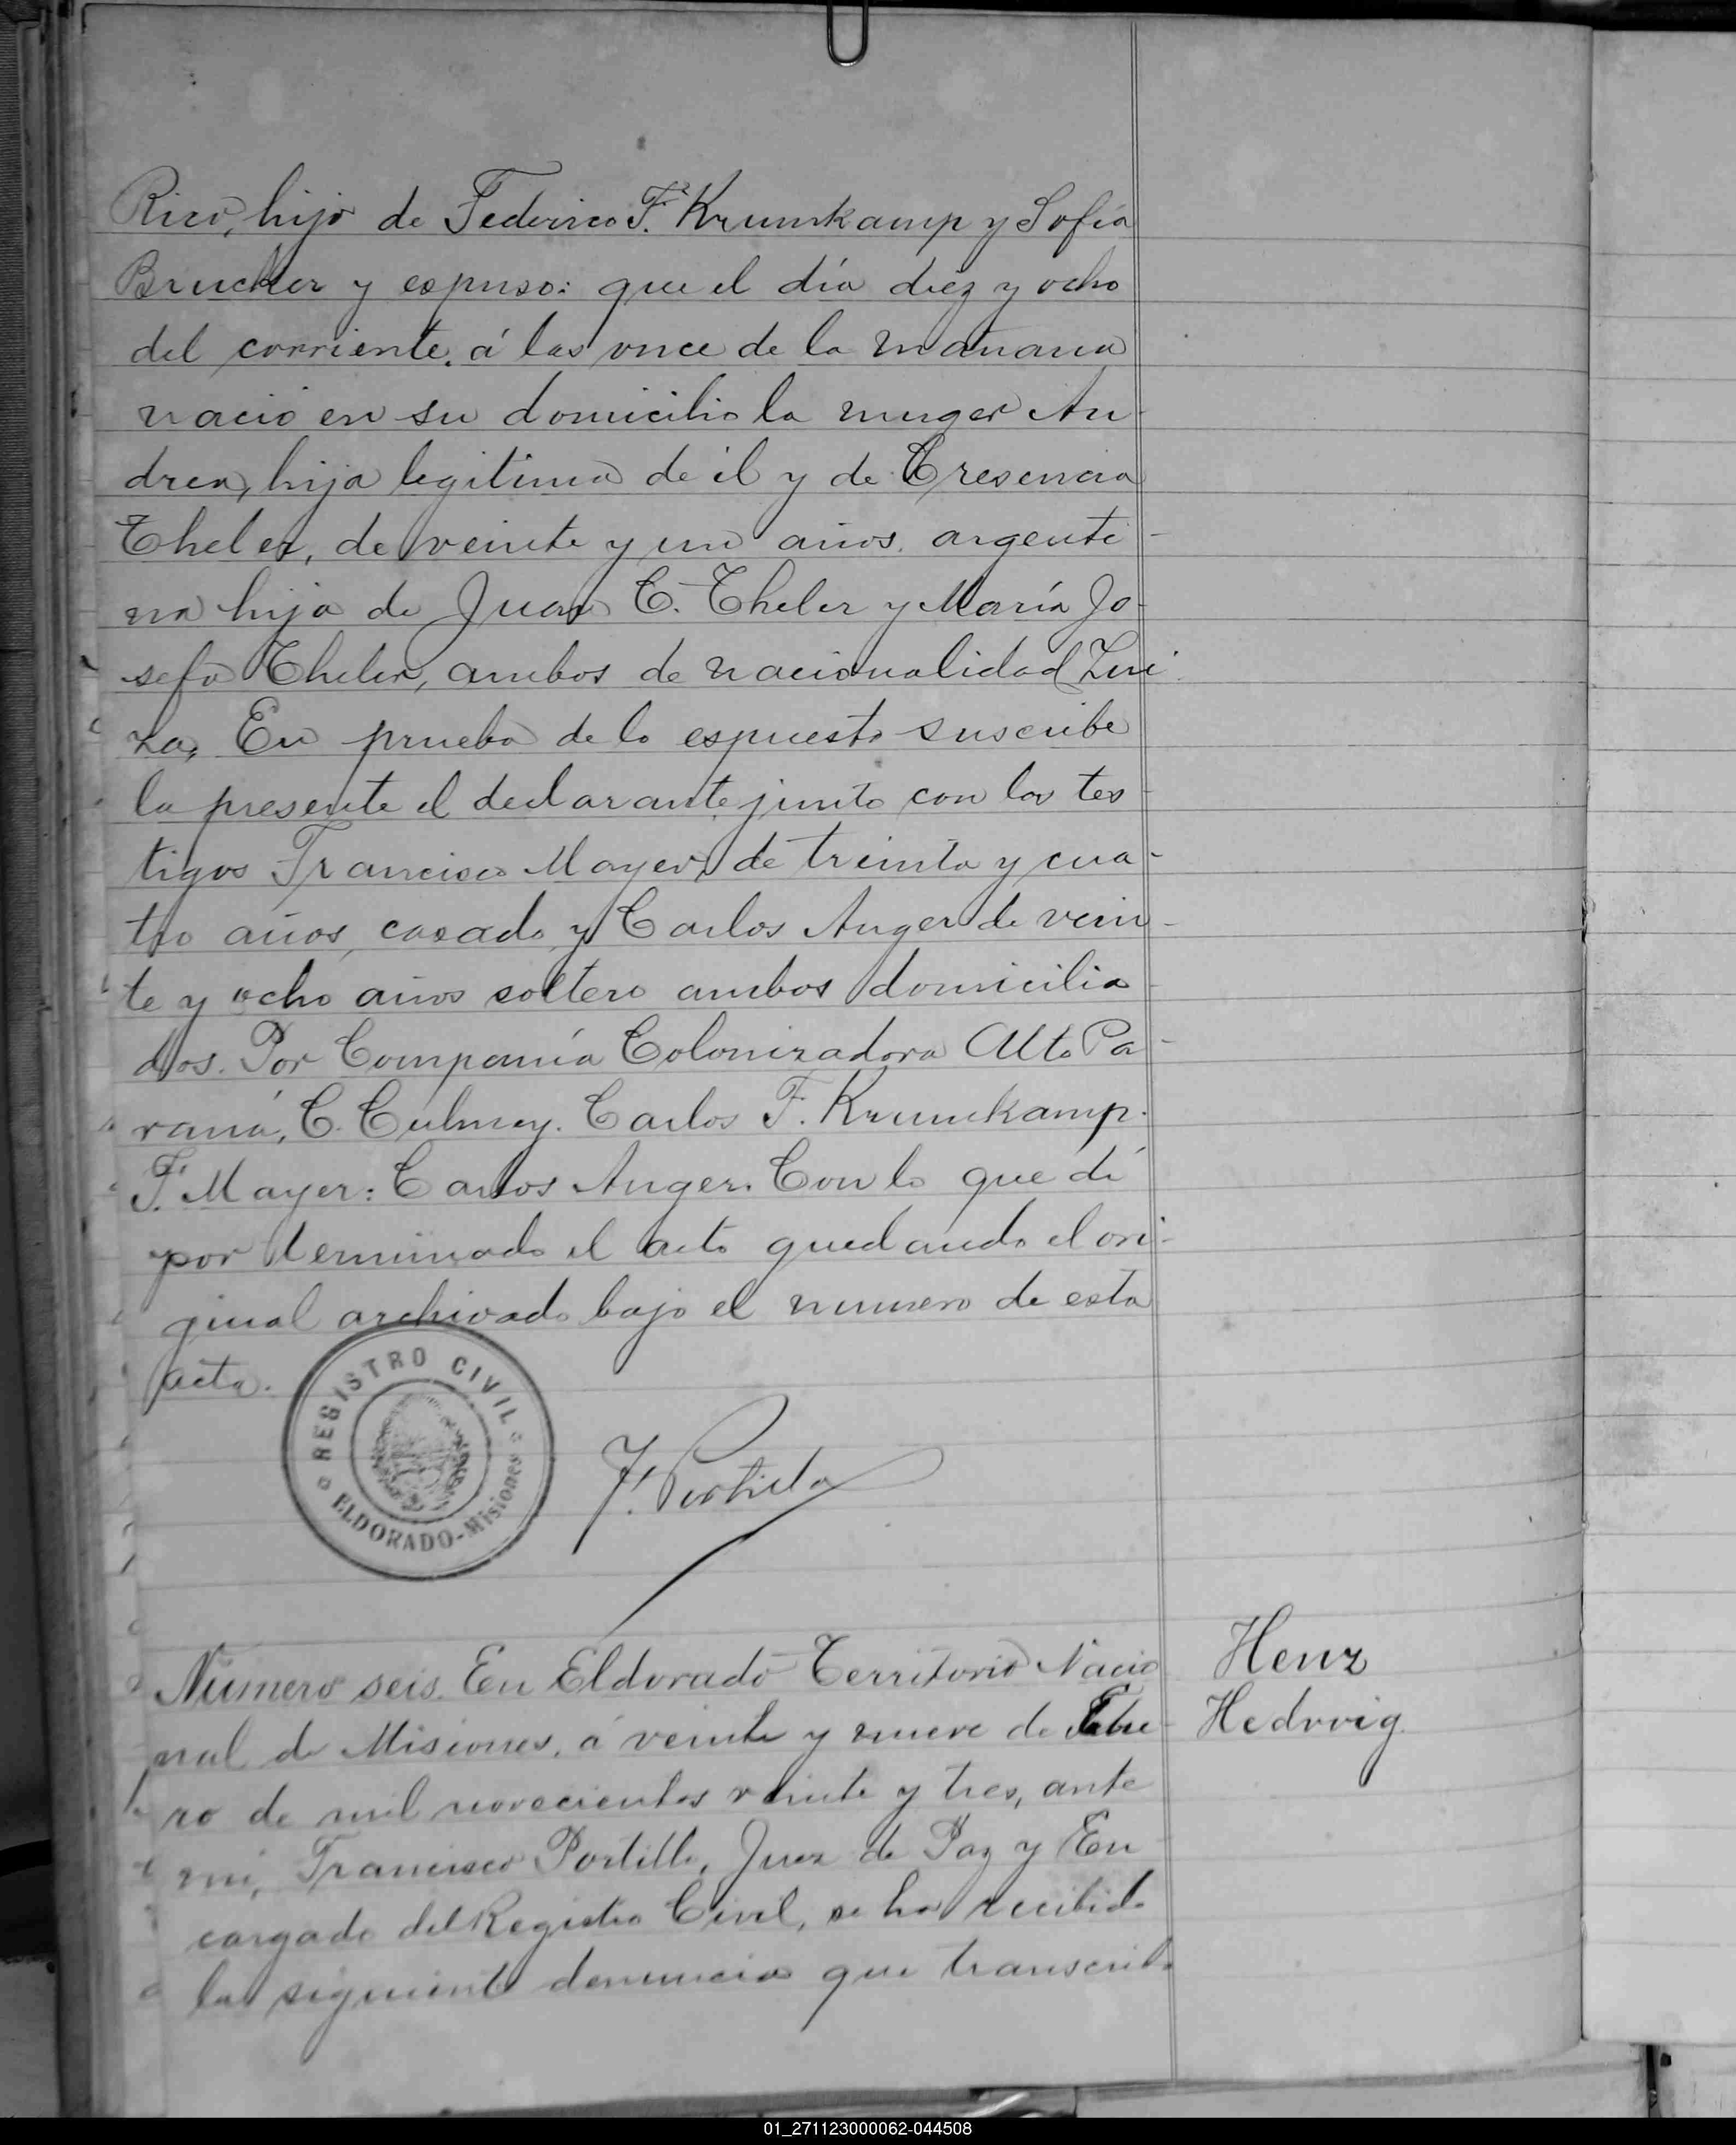 Rico, hijo de Federico F. Krumkamp y Sofía
Brucker y espuso: que el día diez y ocho
del corriente, á las once de la mañana
nació en su domicilio la muger An-
drea, hija legitima de él y de Cresencia
Theler, de veinte y un años, argenti-
na hija de Juan C. Theler y María Jo-
sefa Theler, ambos de nacionalidad Zui-
za, En prueba de lo espuesto suscribe
la presente el declarante junto con los tes-
tigos Francisco Mayer, de treinta y cua-
tro años, casado y Carlos Anger de vein-
te y ocho años soltero ambos domicilia-
dos. Por Compañía Colonizadora Alto Pa-
raná, C. Culmey. Carlos F. Krumkamp.
F. Mayer: Carlos Anger. Con lo que dí
por terminado el acto quedando el ori-
ginal archivado bajo el numero de esta
acta.
REGISTRO CIVIL
ELDORADO-Misiones
F. Portillo
Número seis. En Eldorado Territorio Nacio
nal de Misiones, á veinte y nueve de Febre-
ro de mil novecientos veinte y tres, ante
mi, Francisco Portillo, Juez de Paz y En
cargado del Registro Civil, se ha recibido
la siguiente denuncia que transcribo
Henz
Hedwig
01_271123000062-044508